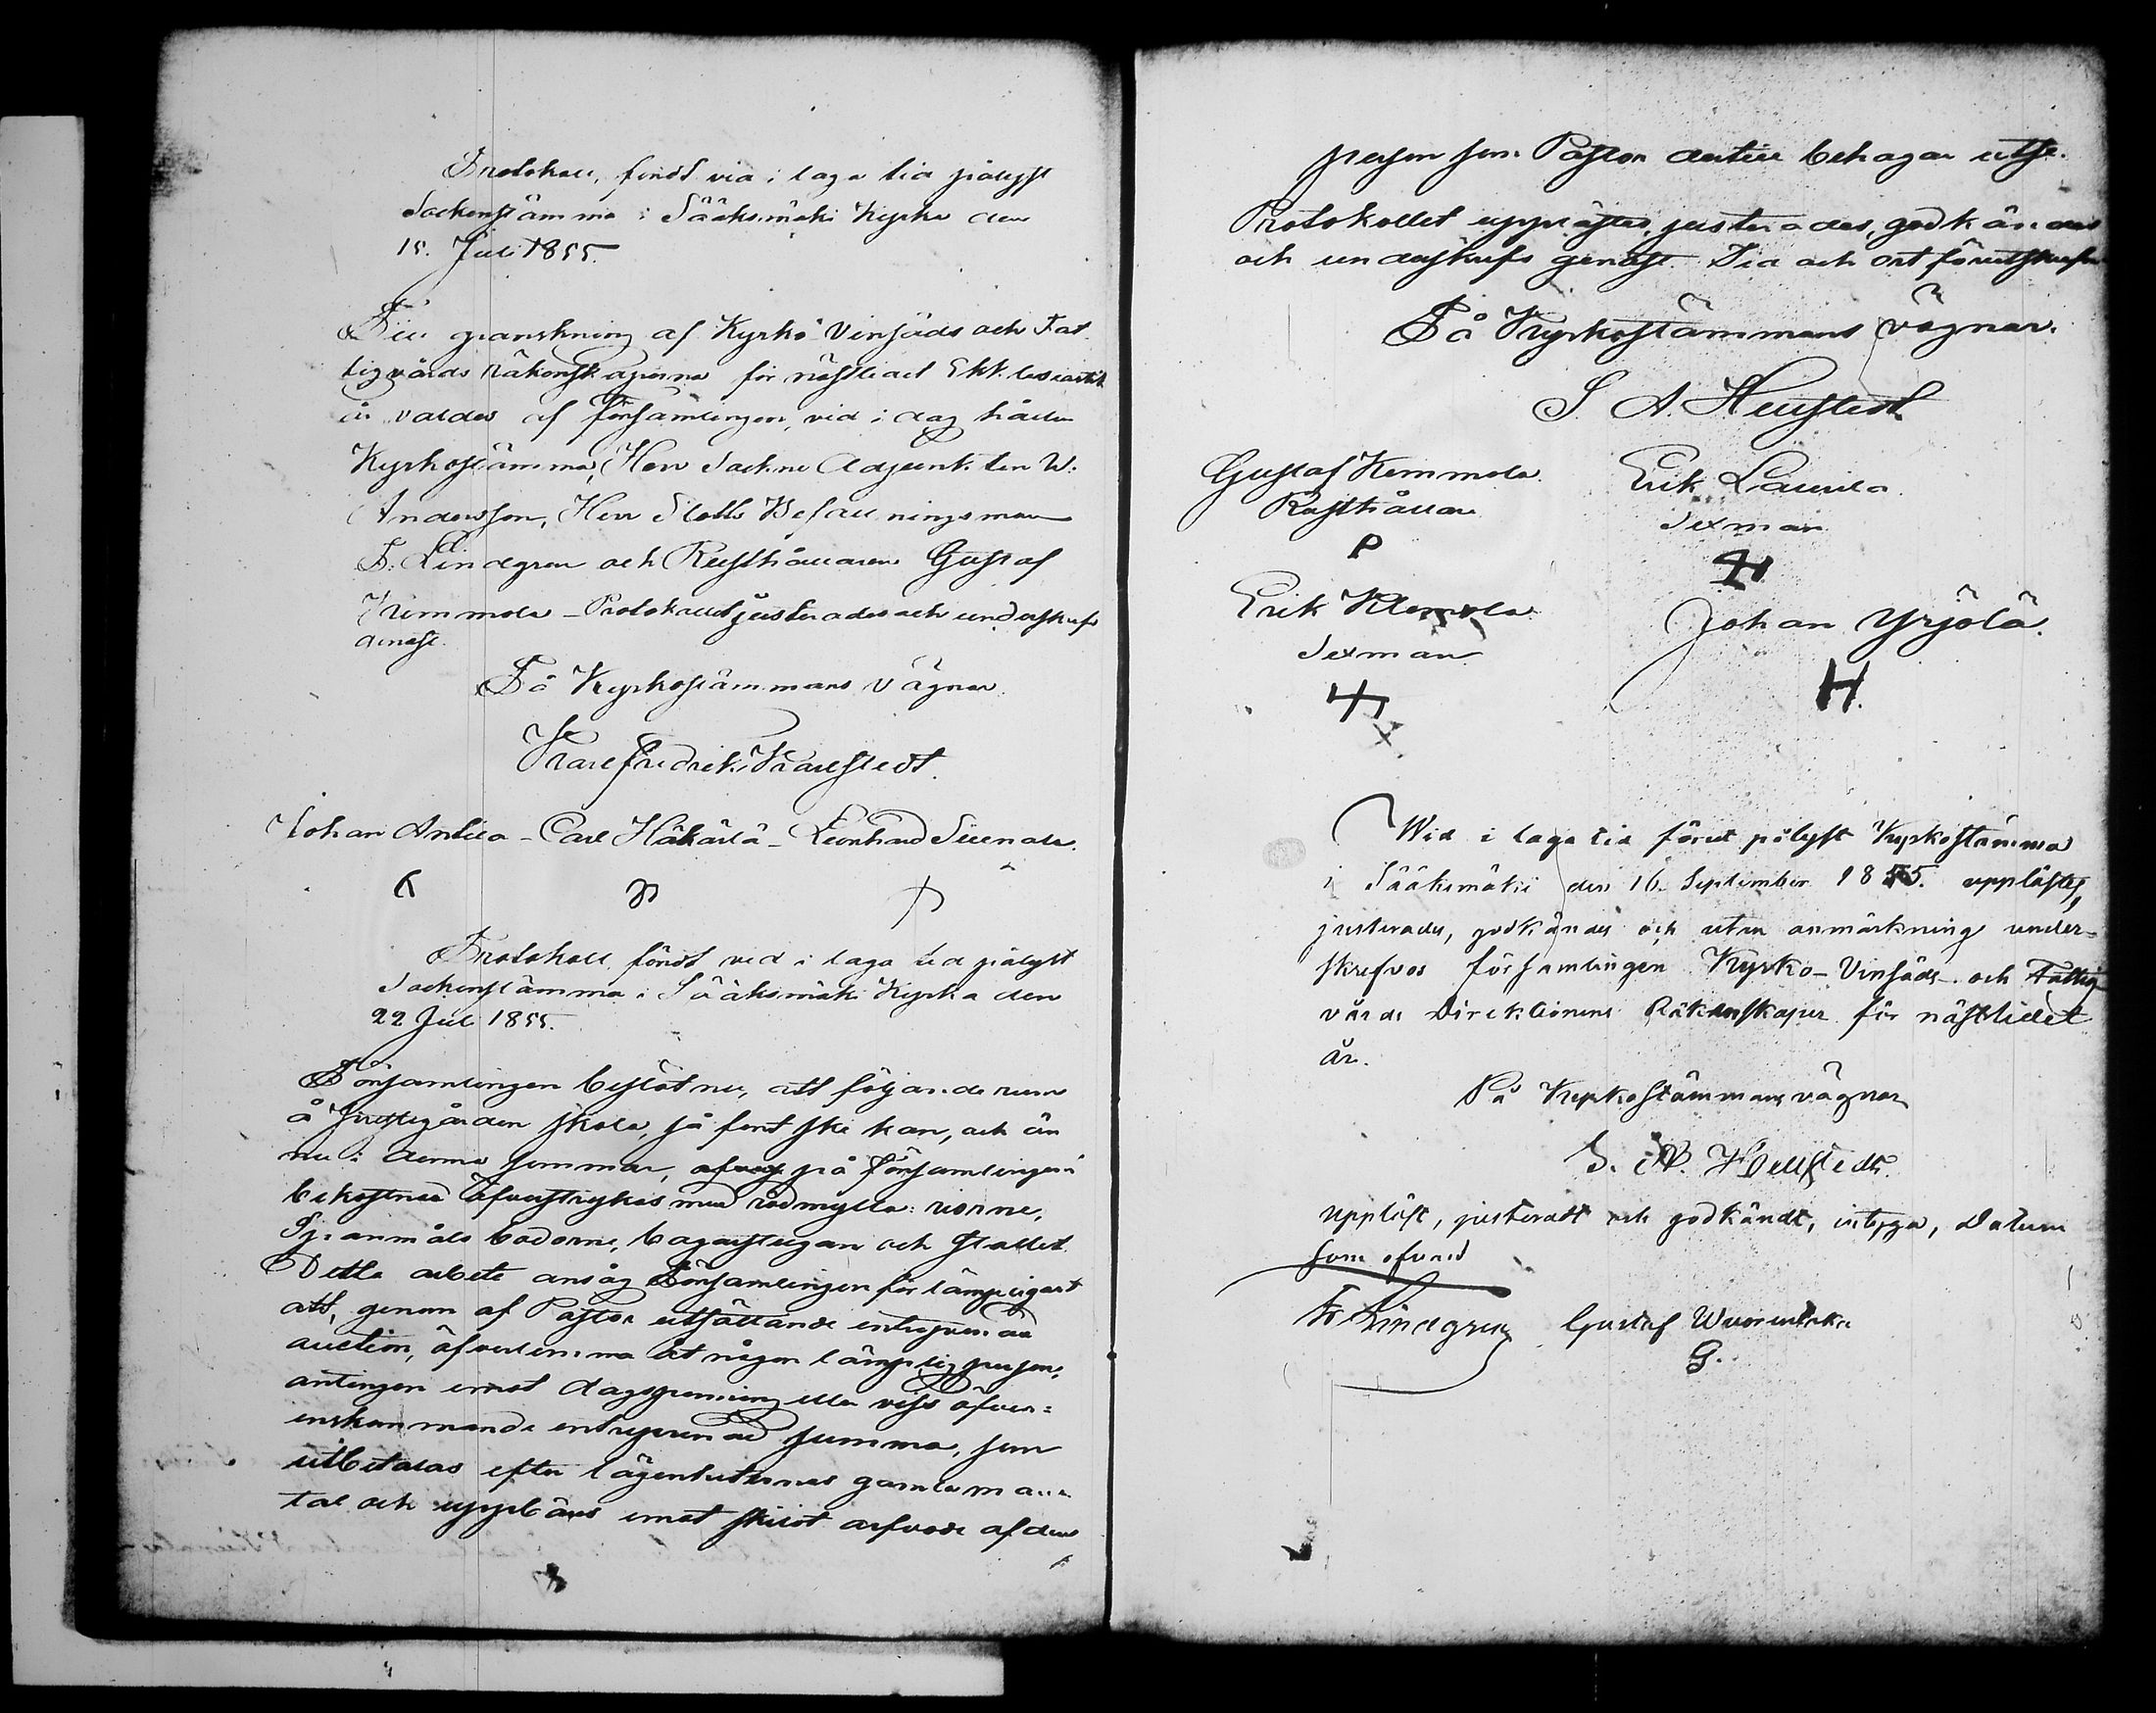 Protokoll, fördt vid i laga tid pålyst
Sockenstämma i Sääksmäki Kyrka den
15. Juli 1855.
Till granskning af Kyrko Vinsäds och Fat
tigvårds Räkenskaperna för nästledet Ekklesiastik
år valdes af Församlingen, vid i dag hållen
Kyrkostämma, Herr Sockne Adjunkten W.
Andersson, Herr Slotts Befallningsman
F. Lindgren och Rusthållaren Gustaf
Kemmola - Protokollet justerades och underskrefs
genast.
På Kyrkostämmans vägnar.
Karl Fredrik Karlstedt.
Johan Anttila - Carl Häkärlä - Leonhard
Protokoll, fördt vid i laga tid pålyst
Sockenstämma i Sääksmäki Kyrka den
22 Juli 1855.
Församlingen beslöt nu, att följande rum
å Prestegården skola, så fort ske kan, och än
nu i denna sommar, på Församlingens
bekostnad öfverstrykas med rödmylla:
bodorne, bagarstugan och stallet.
Detta arbete ansåg Församlingen för lämpligast
att, genom af Pastor utsättande entreprenad
auction, öfverlemna åt någon lämplig person,
antingen emot dagspenning eller viss öfver=
enskommande entreprenad summa, som
utbetalas efter lägenheternes gamla man
tal och uppbärs emot skilot arfvode af den
person som Pastor dertill behagar utse.
Protokollet upplästes, justerades, godkändes
och underskrefs genast. Tid och ort förutskrefne
På Kyrkostämmans vägnar.
S. A. Hellstedt.
Gustaf Kemmola. Erik Laurila.
Rusthållare Sexman
P
Erik Klemola. Johan Yrjölä.
Sexman
H
Wid i laga tid förut pålyst Kyrkostämma
i Sääksmäki den 16 September 1855. upplästes,
justerades, godkändes och utan anmärkning under=
skrefvos församlingen Kyrko- Vinsäds- och Fattig
vårds Direktionens Räkenskaper för nästledet
år.
På Kyrkostämmans vägnar
S. A. Hellstedt.
Uppläst, justeradt och godkändt, intyga, Datum
som ofvan
F. Lindgren Gustaf
G.